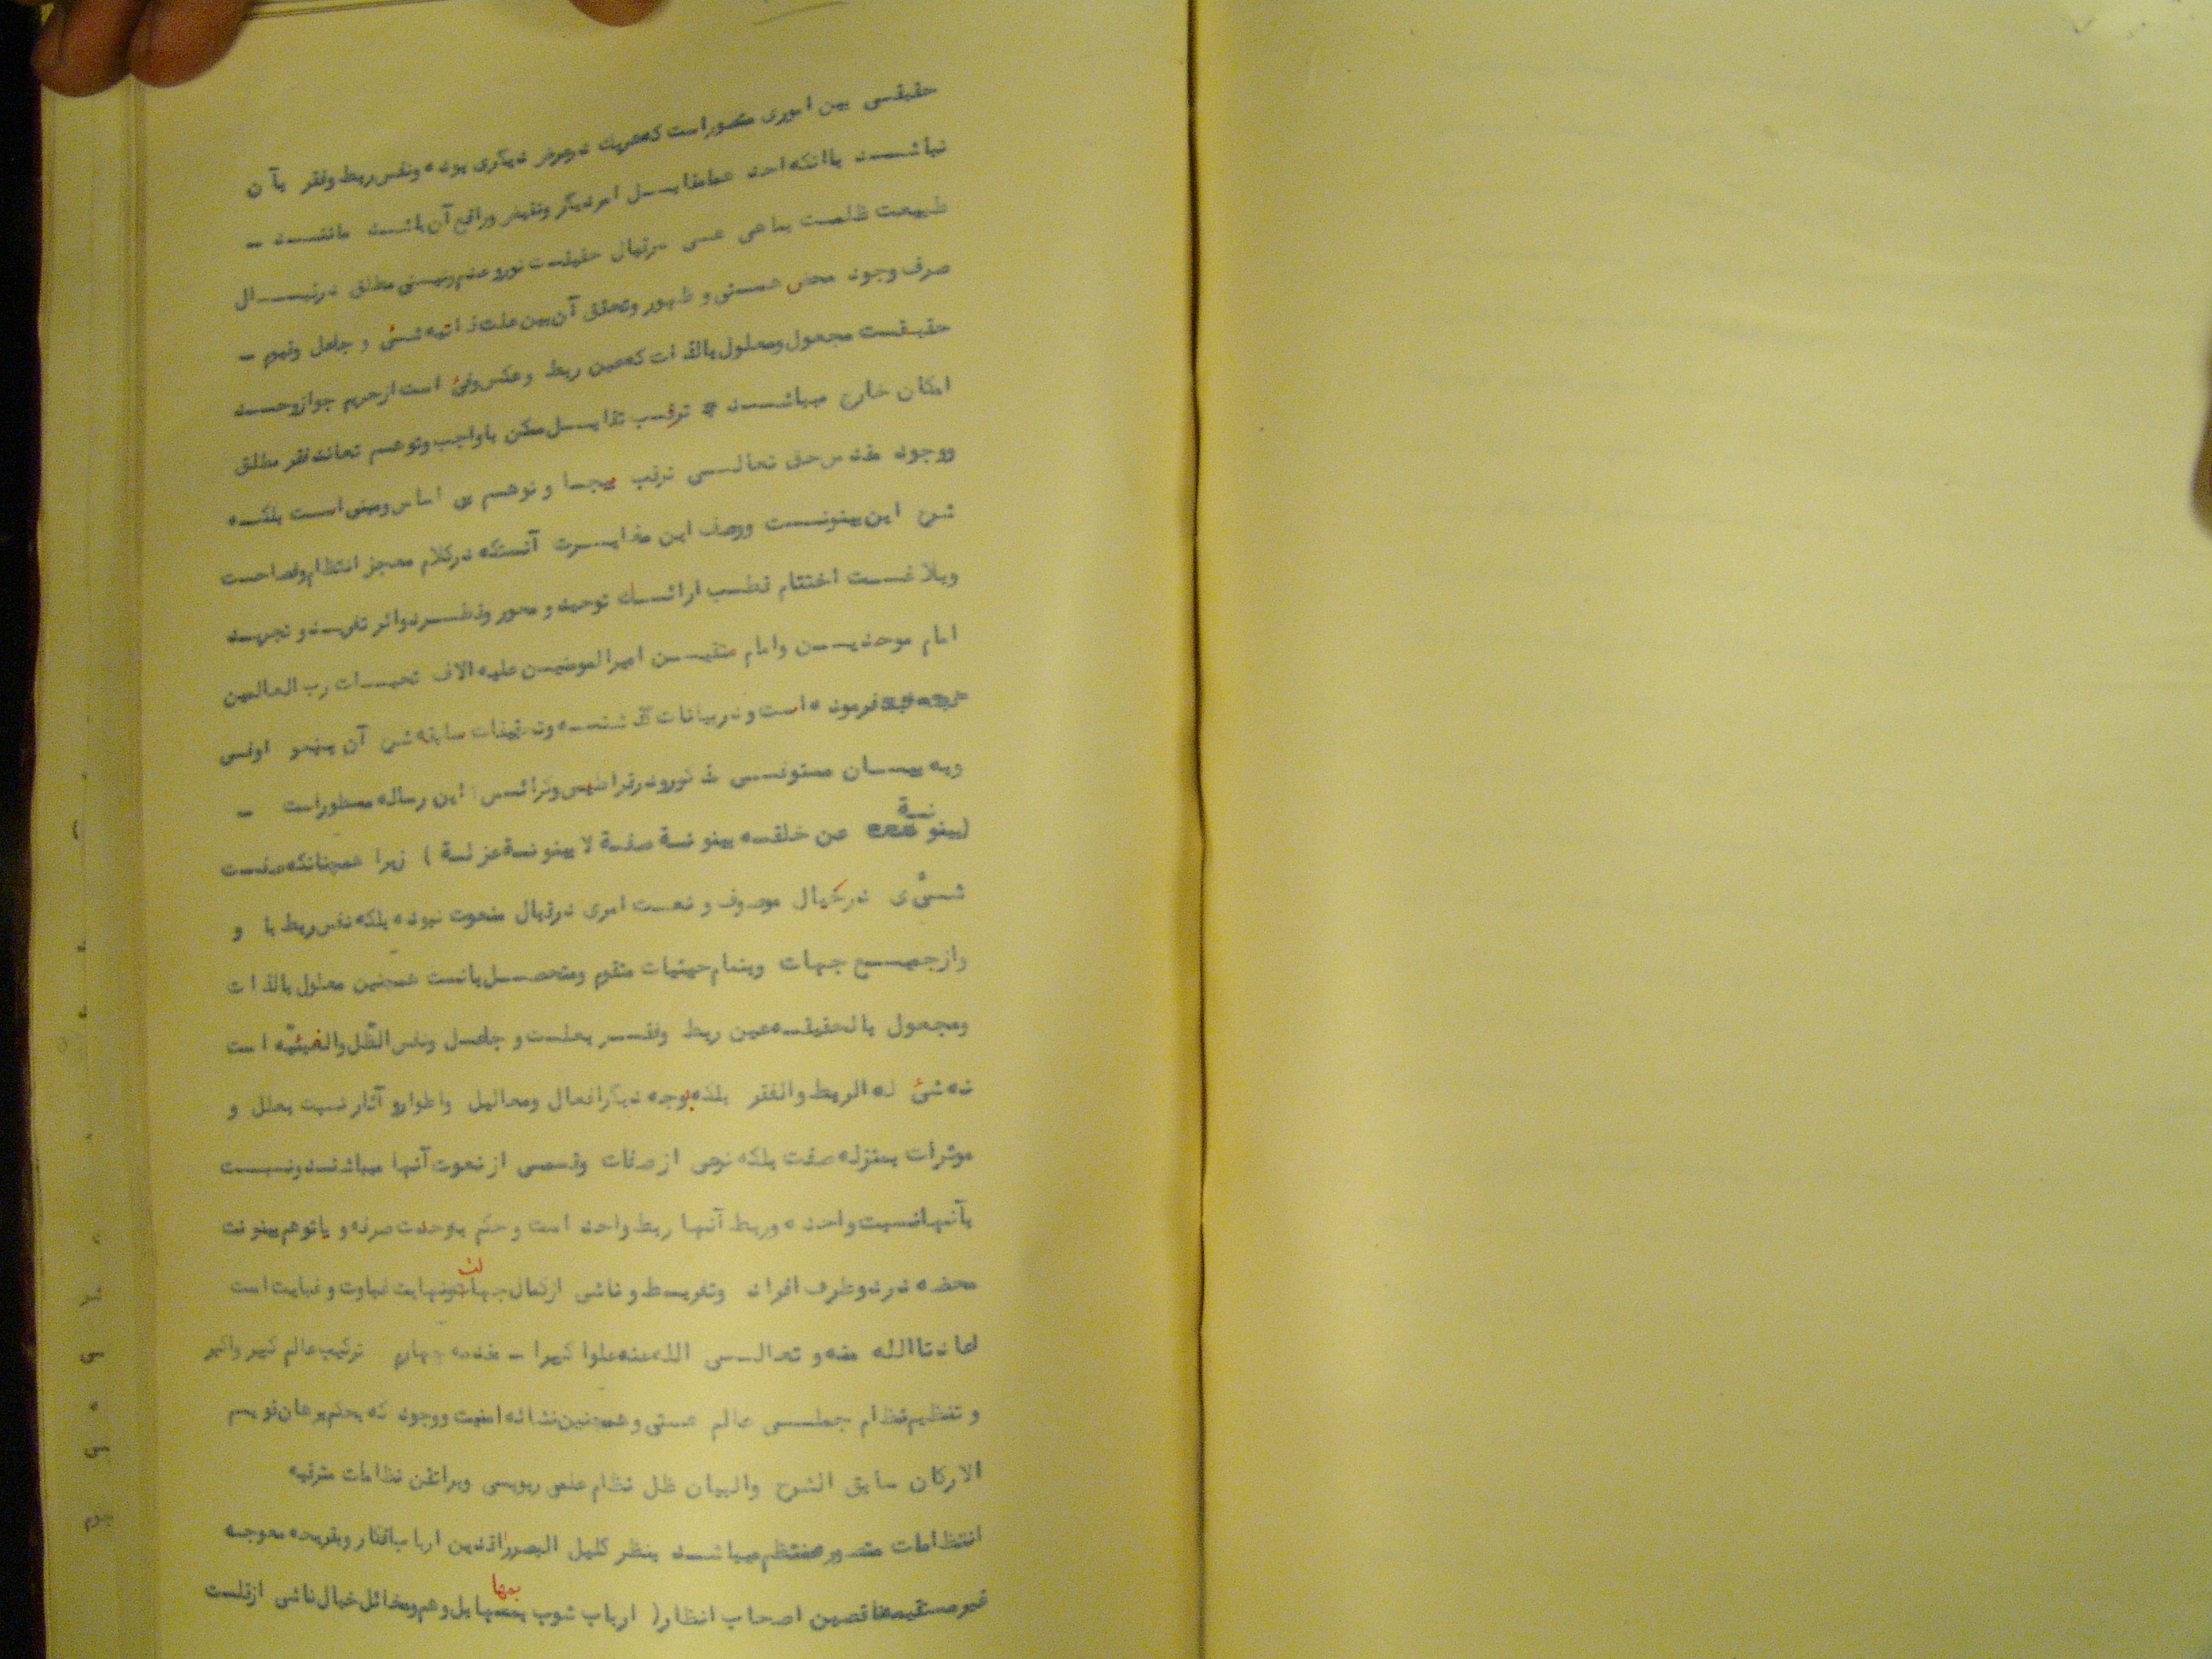 حقیقـی بین اموری متصور است که هریك در عرض دیگری بوده و نفس ربط و فقر بآن
نباشـــد یا آنکه احد عطفا یـــل امر دیگر و نقیض و رافع آن باشـد ماننـــد -
طبیعت ظلمـت بماهی هـی در قبال حقیقـت نور و عدم و نیستی مطلق در قبـــال
صرف وجود محض هســتی و ظهور و تحقق آن بین علت ذاتیه شـیٔ و جاعل و قیوم -
حقیـقـت مجعول و معلول بالذات که عین ربط و عکس و فیٔ است از حریم جواز و حـــد
امکان خارج میباشـــد ترقـب تقابـــل ممکن با واجب و توهـم تعاند فقر مطلق
و وجود مقدس حق تعالـــی ترقب بیجـا و توهـم بی اساس و مبنی اســت بلکـه
شرح این بینونـــت و وصف این مغایـــرت آنستکه در کلام معجز انتظام و فصاحـت
و بلاغـــت اختتام قطـب ارائـــك توحید و محور و قطـــر دوائر تفریـــد و تجریـد
امام موحدیـــن و امام متقیـــن امیر المومنیـن علیه الاف تحیـــات رب العالمین
فرموده است و در بیانات گذشتـــه و تدقیقات سابقه شرح آن بنحو اوفـی
و به بیـــان مستوفـــی مذکور و در قراطیس و کرائـــس این رساله مسطور است -
(بینونـة عن خلقـه بینونـة صفـة لا بینونـة عزلـة ) زیرا همچنانکه صفـت
شـیٔ ی در خیال موصوف و نعـت امری در قبال منعوت نبوده بلکه نفس ربط با و
و از جمیـــع جهات و بتمام حیثیات متقوم و متحصـــل بانست همچنین معلول بالذات
و مجعول بالحقیقـه عین ربط و فقـــر بعلـت و جاعـل و نفس الظّل و الفیئیّه است
نه شیٔ له الربط و الفقر بلکه بوجه دیگر افعال و معالیل و اطوار و آثار نسبت بعلل و
موثرات بمنزله صفت بلکه نوعی از صفات و قسمی از نعوت آنها میباشنـــد و نسبـــت
بآنها نسبت واحده و ربط آنها ربط واحد است و حکم بوحدت صرفه و یا توهم بینونت
محضه در دو طرف افراط و تفریـط و ناشی از کمال جهالت و نهایت غباوت و غیایت است
اعاذنا اللّه منه و تعالـــی اللّه عنه علوا کبیرا - مقدمه چهارم ترکیب عالم کبیر و اکبر
و تنظیم نظام جملـــی عالم هستی و همچنین نشائه امنیت و وجود که بحکم برهان قویم
الارکان سابق الشرح و البیان ظل نظام علمی ربوبـی و بر اتقن نظامات مترقبه
انتظامات متصوره منتظم میباشـــد بنظر کلیل البصر راقدین ارباب افکار و بقریحه معوجـه
غیر مستقیمه ناقصین اصحاب انظار( ارباب شوب بمهابل وهم و مخائل خیال ناشی از قلـت